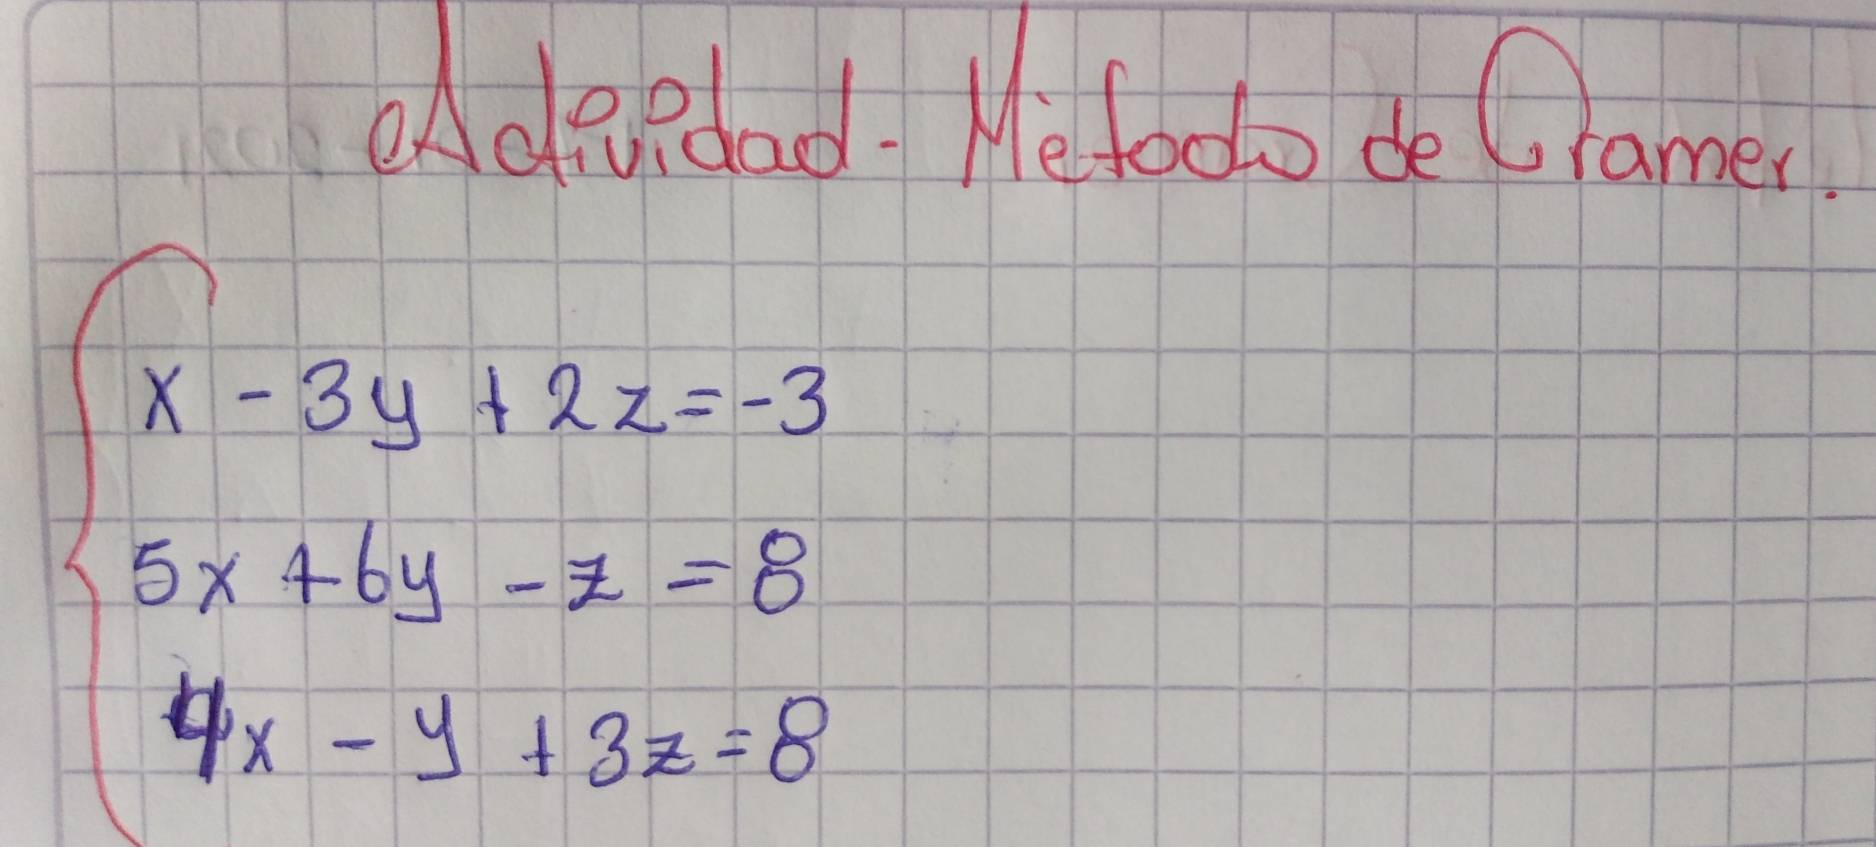 Actividad - Mètodo de Cramer.
x - 3y + 2z = -3
5x + 6y - z = 8
4x - y + 3z = 8